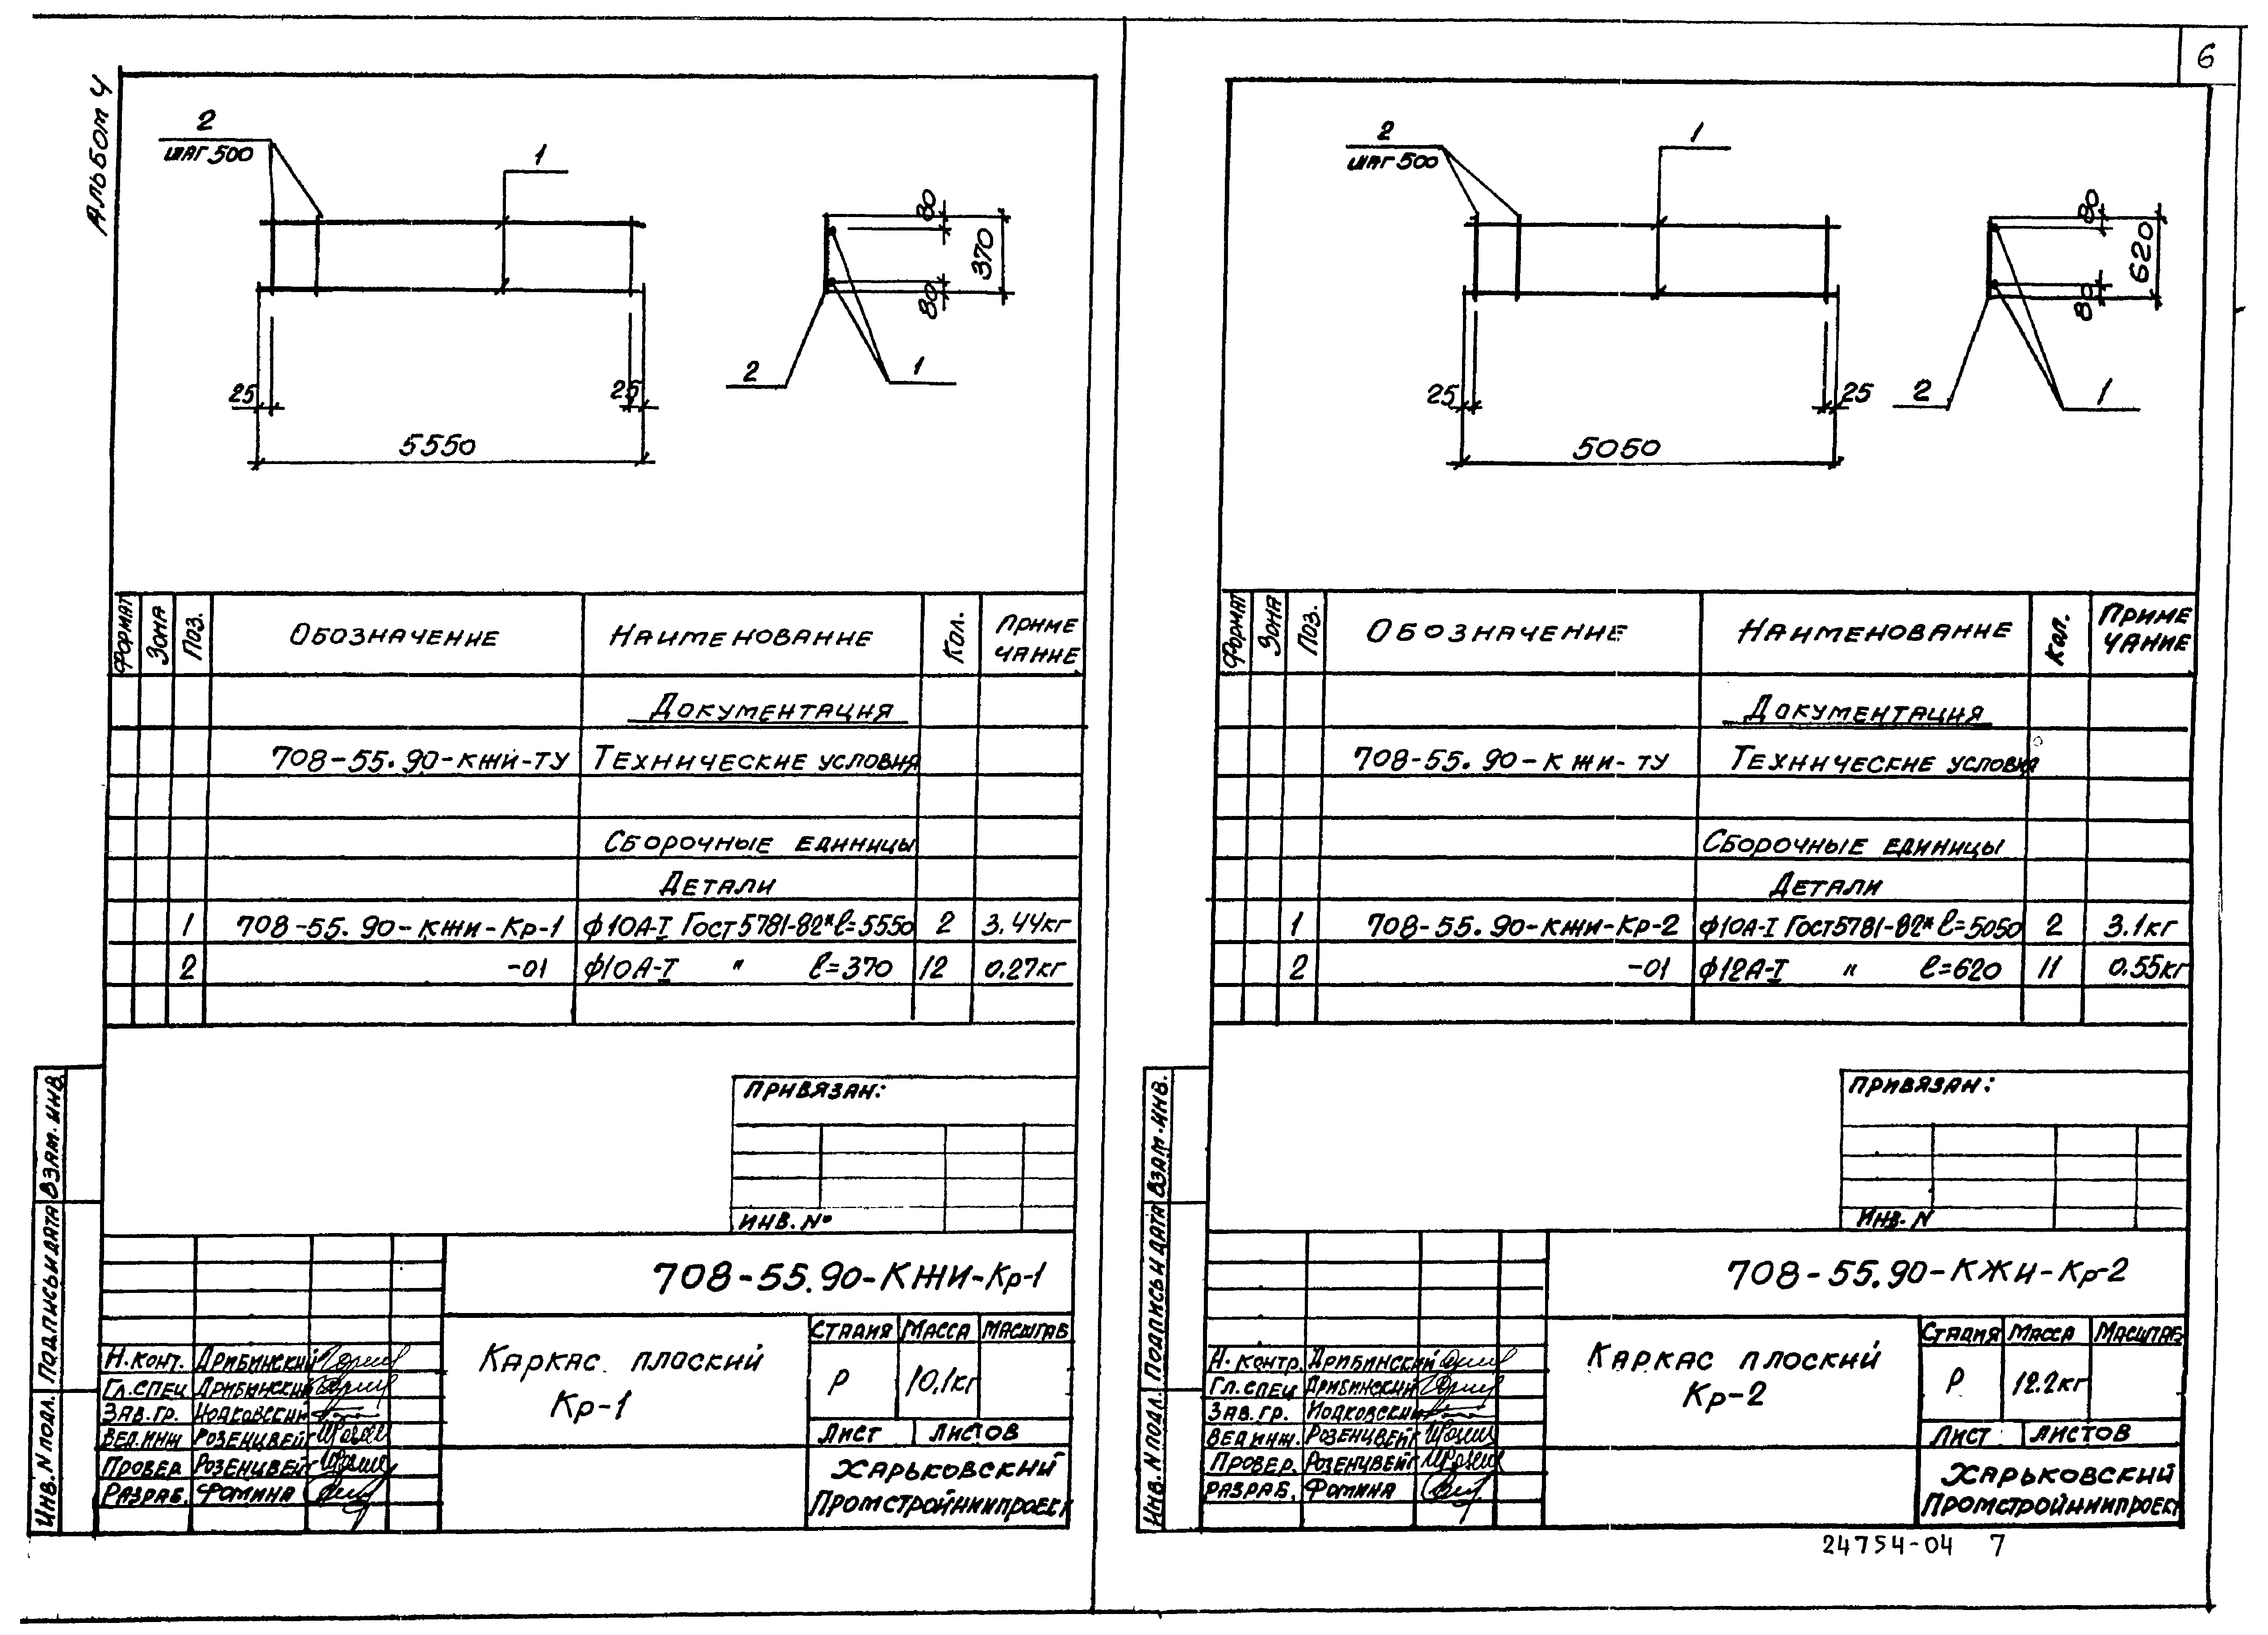 6
Альбом 4
2
шаг 500
1
80
370
80
25
25
5550
2
1
Формат Зона Поз. Обозначение Наименование Кол. Приме
чание
Документация
708-55.90-КЖИ-ТУ Технические условия
Сборочные единицы
Детали
1 708-55.90-КЖИ-Кр-1 ф10А-I Гост 5781-82* ℓ=5550 2 3.44кг
2 -01 ф10А-I " ℓ=370 12 0.27кг
Привязан:
Инв. №
708-55.90-КЖИ-Кр-1
Каркас плоский
Кр-1
Стадия Масса Масштаб
Р 10,1кг
Лист Листов
Харьковский
Промстройниипроект
Н.конт. Дрибинский
Гл.спец Дрибинский
Зав.гр. Иодковский
Вед.инж Розенцвейг
Провер Розенцвейг
Разраб. Фомина
Взам. инв.
Подпись и дата
Инв. N подл.
2
шаг 500
1
80
620
80
25
25
5050
2
1
Формат Зона Поз. Обозначение Наименование Кол. Приме
чание
Документация
708-55.90-КЖИ-ТУ Технические условия
Сборочные единицы
Детали
1 708-55.90-КЖИ-Кр-2 ф10А-I Гост 5781-82* ℓ=5050 2 3.1кг
2 -01 ф12А-I " ℓ=620 11 0.55кг
Привязан:
Инв. N
708-55.90-КЖИ-Кр-2
Каркас плоский
Кр-2
Стадия Масса Масштаб
Р 12.2кг
Лист Листов
Харьковский
Промстройниипроект
Н.контр. Дрибинский
Гл.спец Дрибинский
Зав.гр. Иодковский
Вед.инж. Розенцвейг
Провер. Розенцвейг
Разраб. Фомина
Взам. инв.
Подпись и дата
Инв. N подл.
24754-04 7